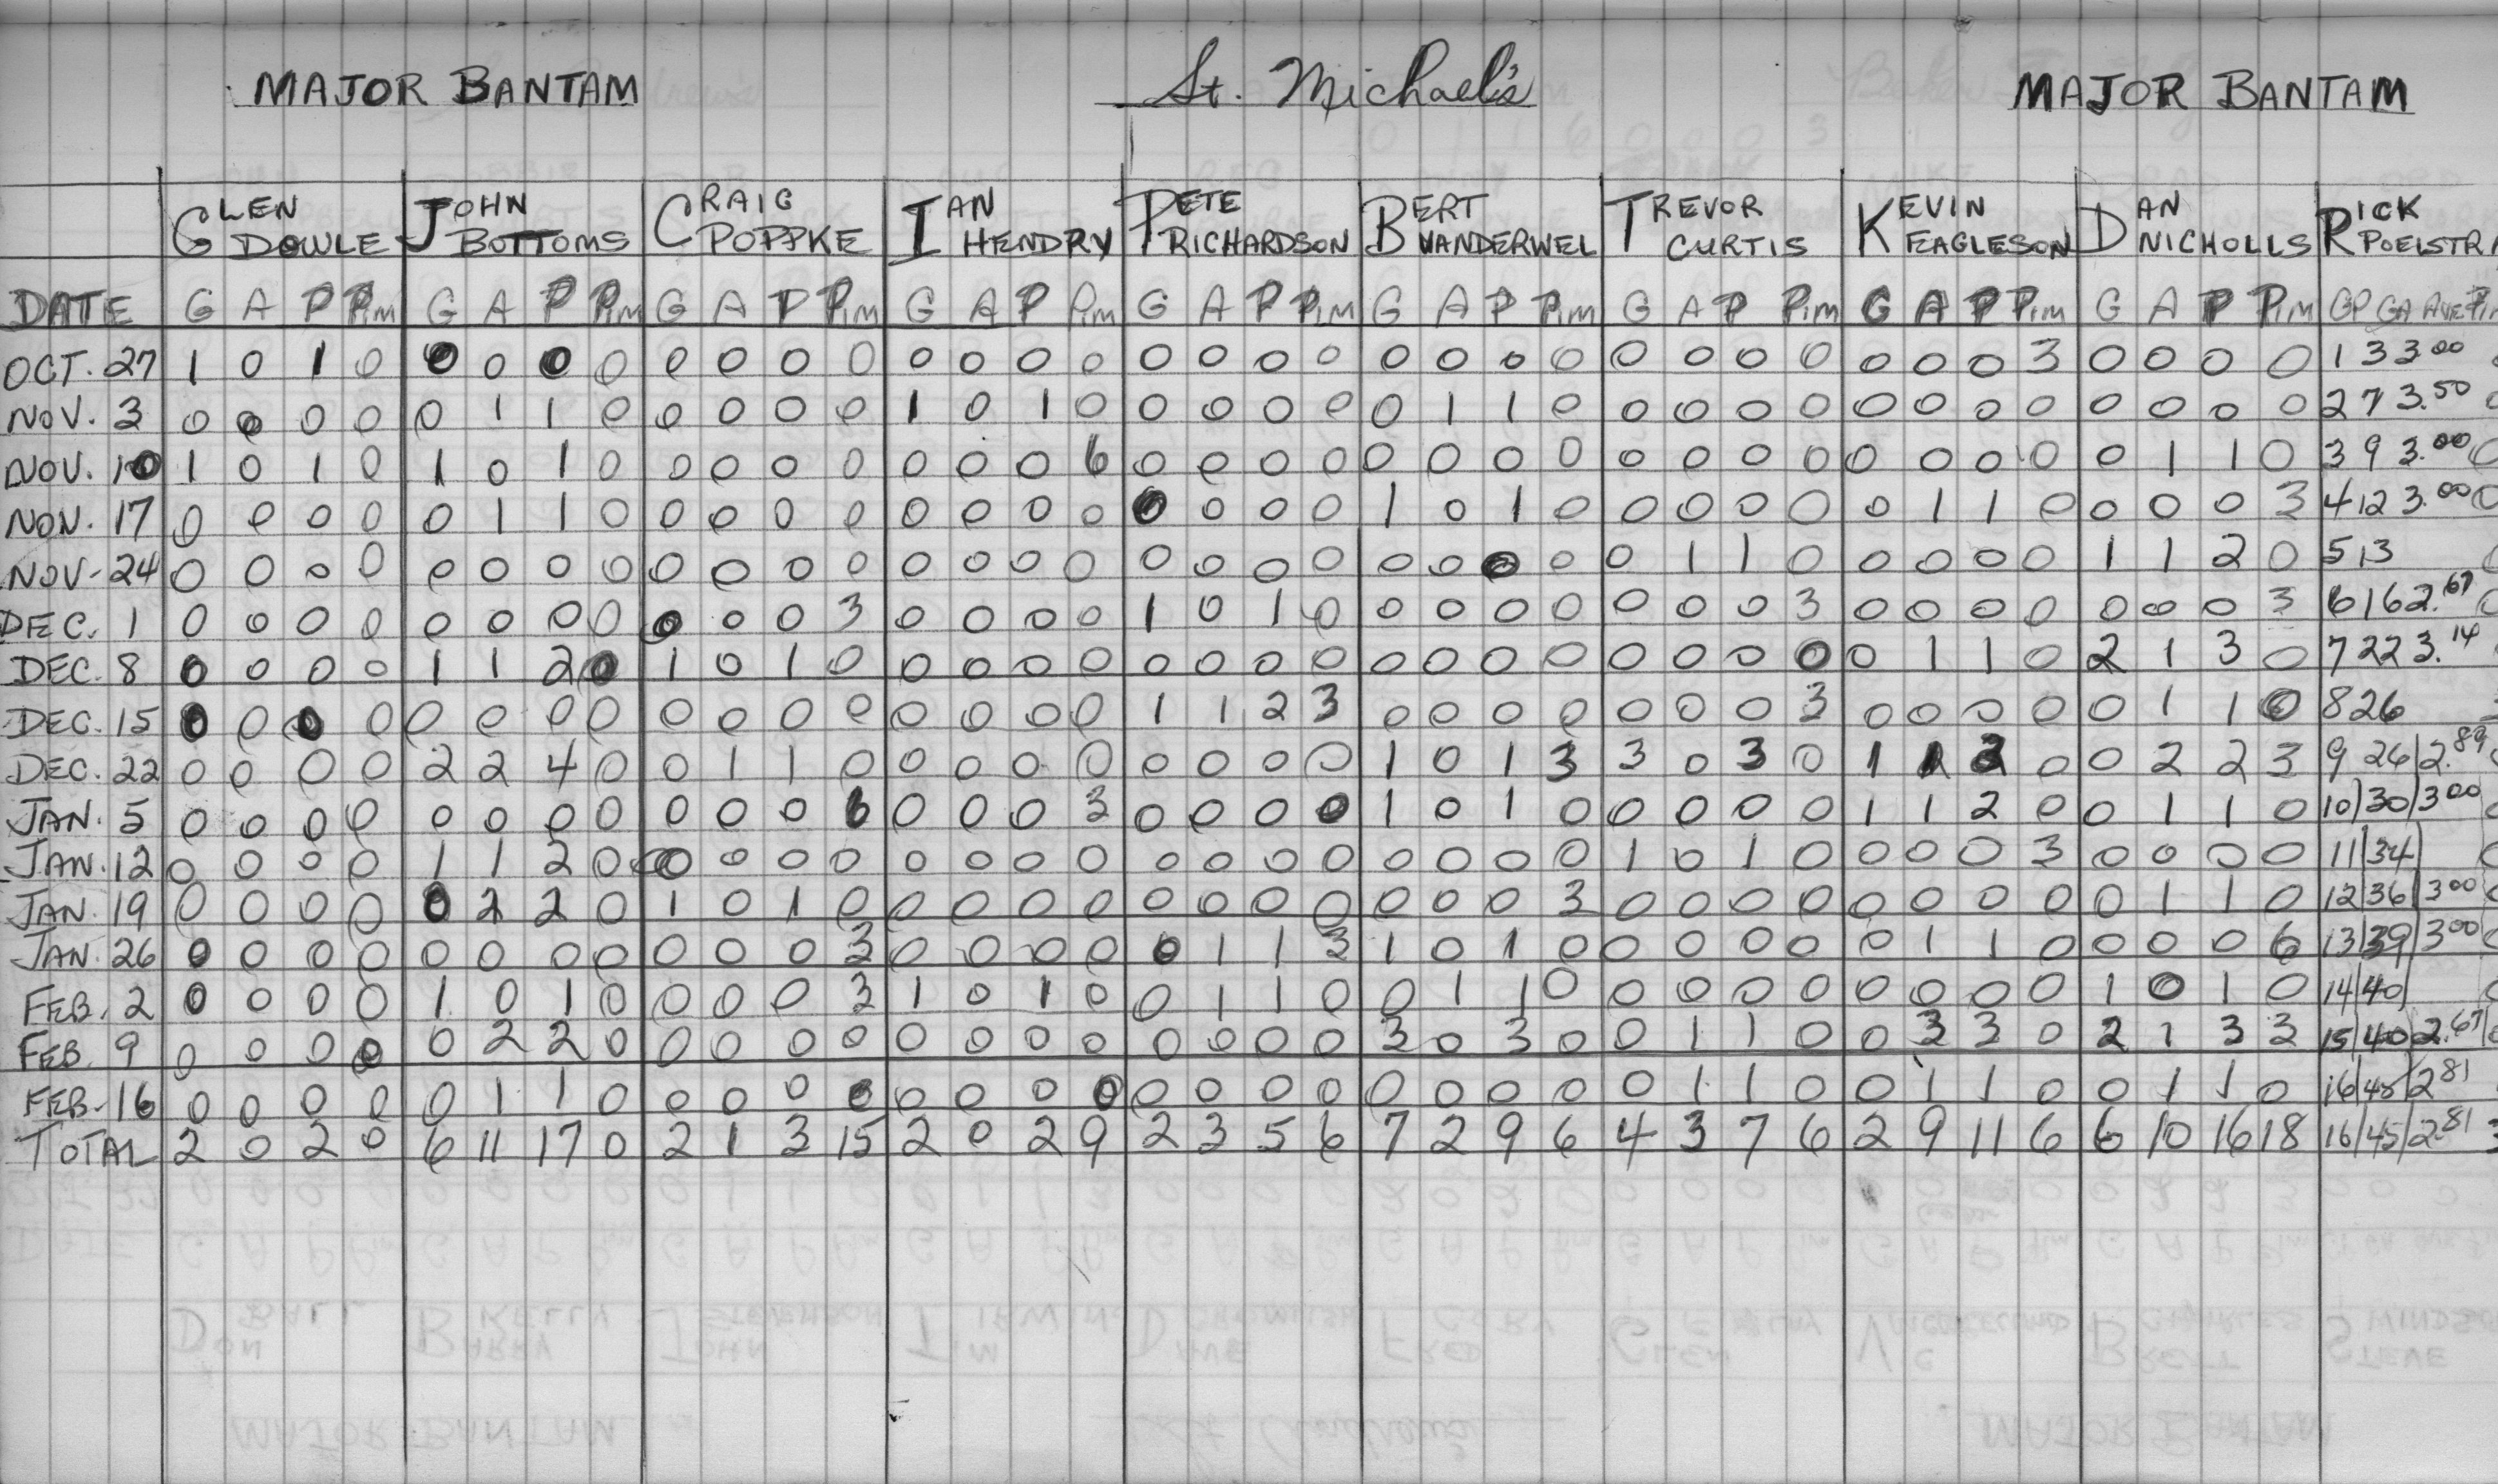 MAJOR BANTAM St. Michael's MAJOR BANTAM
GLEN DOWLE JOHN BOTTOMS CRAIG POPPKE IAN HENDRY PETE RICHARDSON BERT VANDERWEL TREVOR CURTIS KEVIN FEAGLESON DAN NICHOLLS RICK POELSTRA
DATE G A P Pim G A P Pim G A P Pim G A P Pim G A P Pim G A P Pim G A P Pim G A P Pim G A P Pim GP GA AVE Pim
OCT. 27 1 0 1 0 0 0 0 0 0 0 0 0 0 0 0 0 0 0 0 0 0 0 0 0 0 0 0 0 0 0 0 3 0 0 0 0 1 3 3.00
NOV. 3 0 0 0 0 0 1 1 0 0 0 0 0 1 0 1 0 0 0 0 0 0 1 1 0 0 0 0 0 0 0 0 0 0 0 0 0 2 7 3.50
NOV. 10 1 0 1 0 1 0 1 0 0 0 0 0 0 0 0 6 0 0 0 0 0 0 0 0 0 0 0 0 0 0 0 0 0 1 1 0 3 9 3.00 0
NON. 17 0 0 0 0 0 1 1 0 0 0 0 0 0 0 0 0 0 0 0 0 1 0 1 0 0 0 0 0 0 1 1 0 0 0 0 3 4 12 3.00 0
NOV-24 0 0 0 0 0 0 0 0 0 0 0 0 0 0 0 0 0 0 0 0 0 0 0 0 0 1 1 0 0 0 0 0 1 1 2 0 5 13
DEC. 1 0 0 0 0 0 0 0 0 0 0 0 3 0 0 0 0 1 0 1 0 0 0 0 0 0 0 0 3 0 0 0 0 0 0 0 3 6 16 2.67
DEC. 8 0 0 0 0 1 1 2 0 1 0 1 0 0 0 0 0 0 0 0 0 0 0 0 0 0 0 0 0 0 1 1 0 2 1 3 0 7 22 3.14
DEC. 15 0 0 0 0 0 0 0 0 0 0 0 0 0 0 0 0 1 1 2 3 0 0 0 0 0 0 0 3 0 0 0 0 0 1 1 0 8 26
DEC. 22 0 0 0 0 2 2 4 0 0 1 1 0 0 0 0 0 0 0 0 0 1 0 1 3 3 0 3 0 1 1 2 0 0 2 2 3 9 26 2.89
JAN. 5 0 0 0 0 0 0 0 0 0 0 0 6 0 0 0 3 0 0 0 0 1 0 1 0 0 0 0 0 1 1 2 0 0 1 1 0 10 30 3.00
JAN. 12 0 0 0 0 1 1 2 0 0 0 0 0 0 0 0 0 0 0 0 0 0 0 0 0 1 0 1 0 0 0 0 3 0 0 0 0 11 34
JAN. 19 0 0 0 0 0 2 2 0 1 0 1 0 0 0 0 0 0 0 0 0 0 0 0 3 0 0 0 0 0 0 0 0 0 1 1 0 12 36 3.00
JAN. 26 0 0 0 0 0 0 0 0 0 0 0 3 0 0 0 0 0 1 1 3 1 0 1 0 0 0 0 0 0 1 1 0 0 0 0 6 13 39 3.00
FEB. 2 0 0 0 0 1 0 1 0 0 0 0 3 1 0 1 0 0 1 1 0 0 1 1 0 0 0 0 0 0 0 0 0 1 0 1 0 14 40
FEB. 9 0 0 0 0 0 2 2 0 0 0 0 0 0 0 0 0 0 0 0 0 3 0 3 0 0 1 1 0 0 3 3 0 2 1 3 3 15 40 2.67
FEB-16 0 0 0 0 0 1 1 0 0 0 0 0 0 0 0 0 0 0 0 0 0 0 0 0 0 1 1 0 0 1 1 0 0 1 1 0 16 45 2.81
TOTAL 2 0 2 0 6 11 17 0 2 1 3 15 2 0 2 9 2 3 5 6 7 2 9 6 4 3 7 6 2 9 11 6 6 10 16 18 16 45 2.81 3